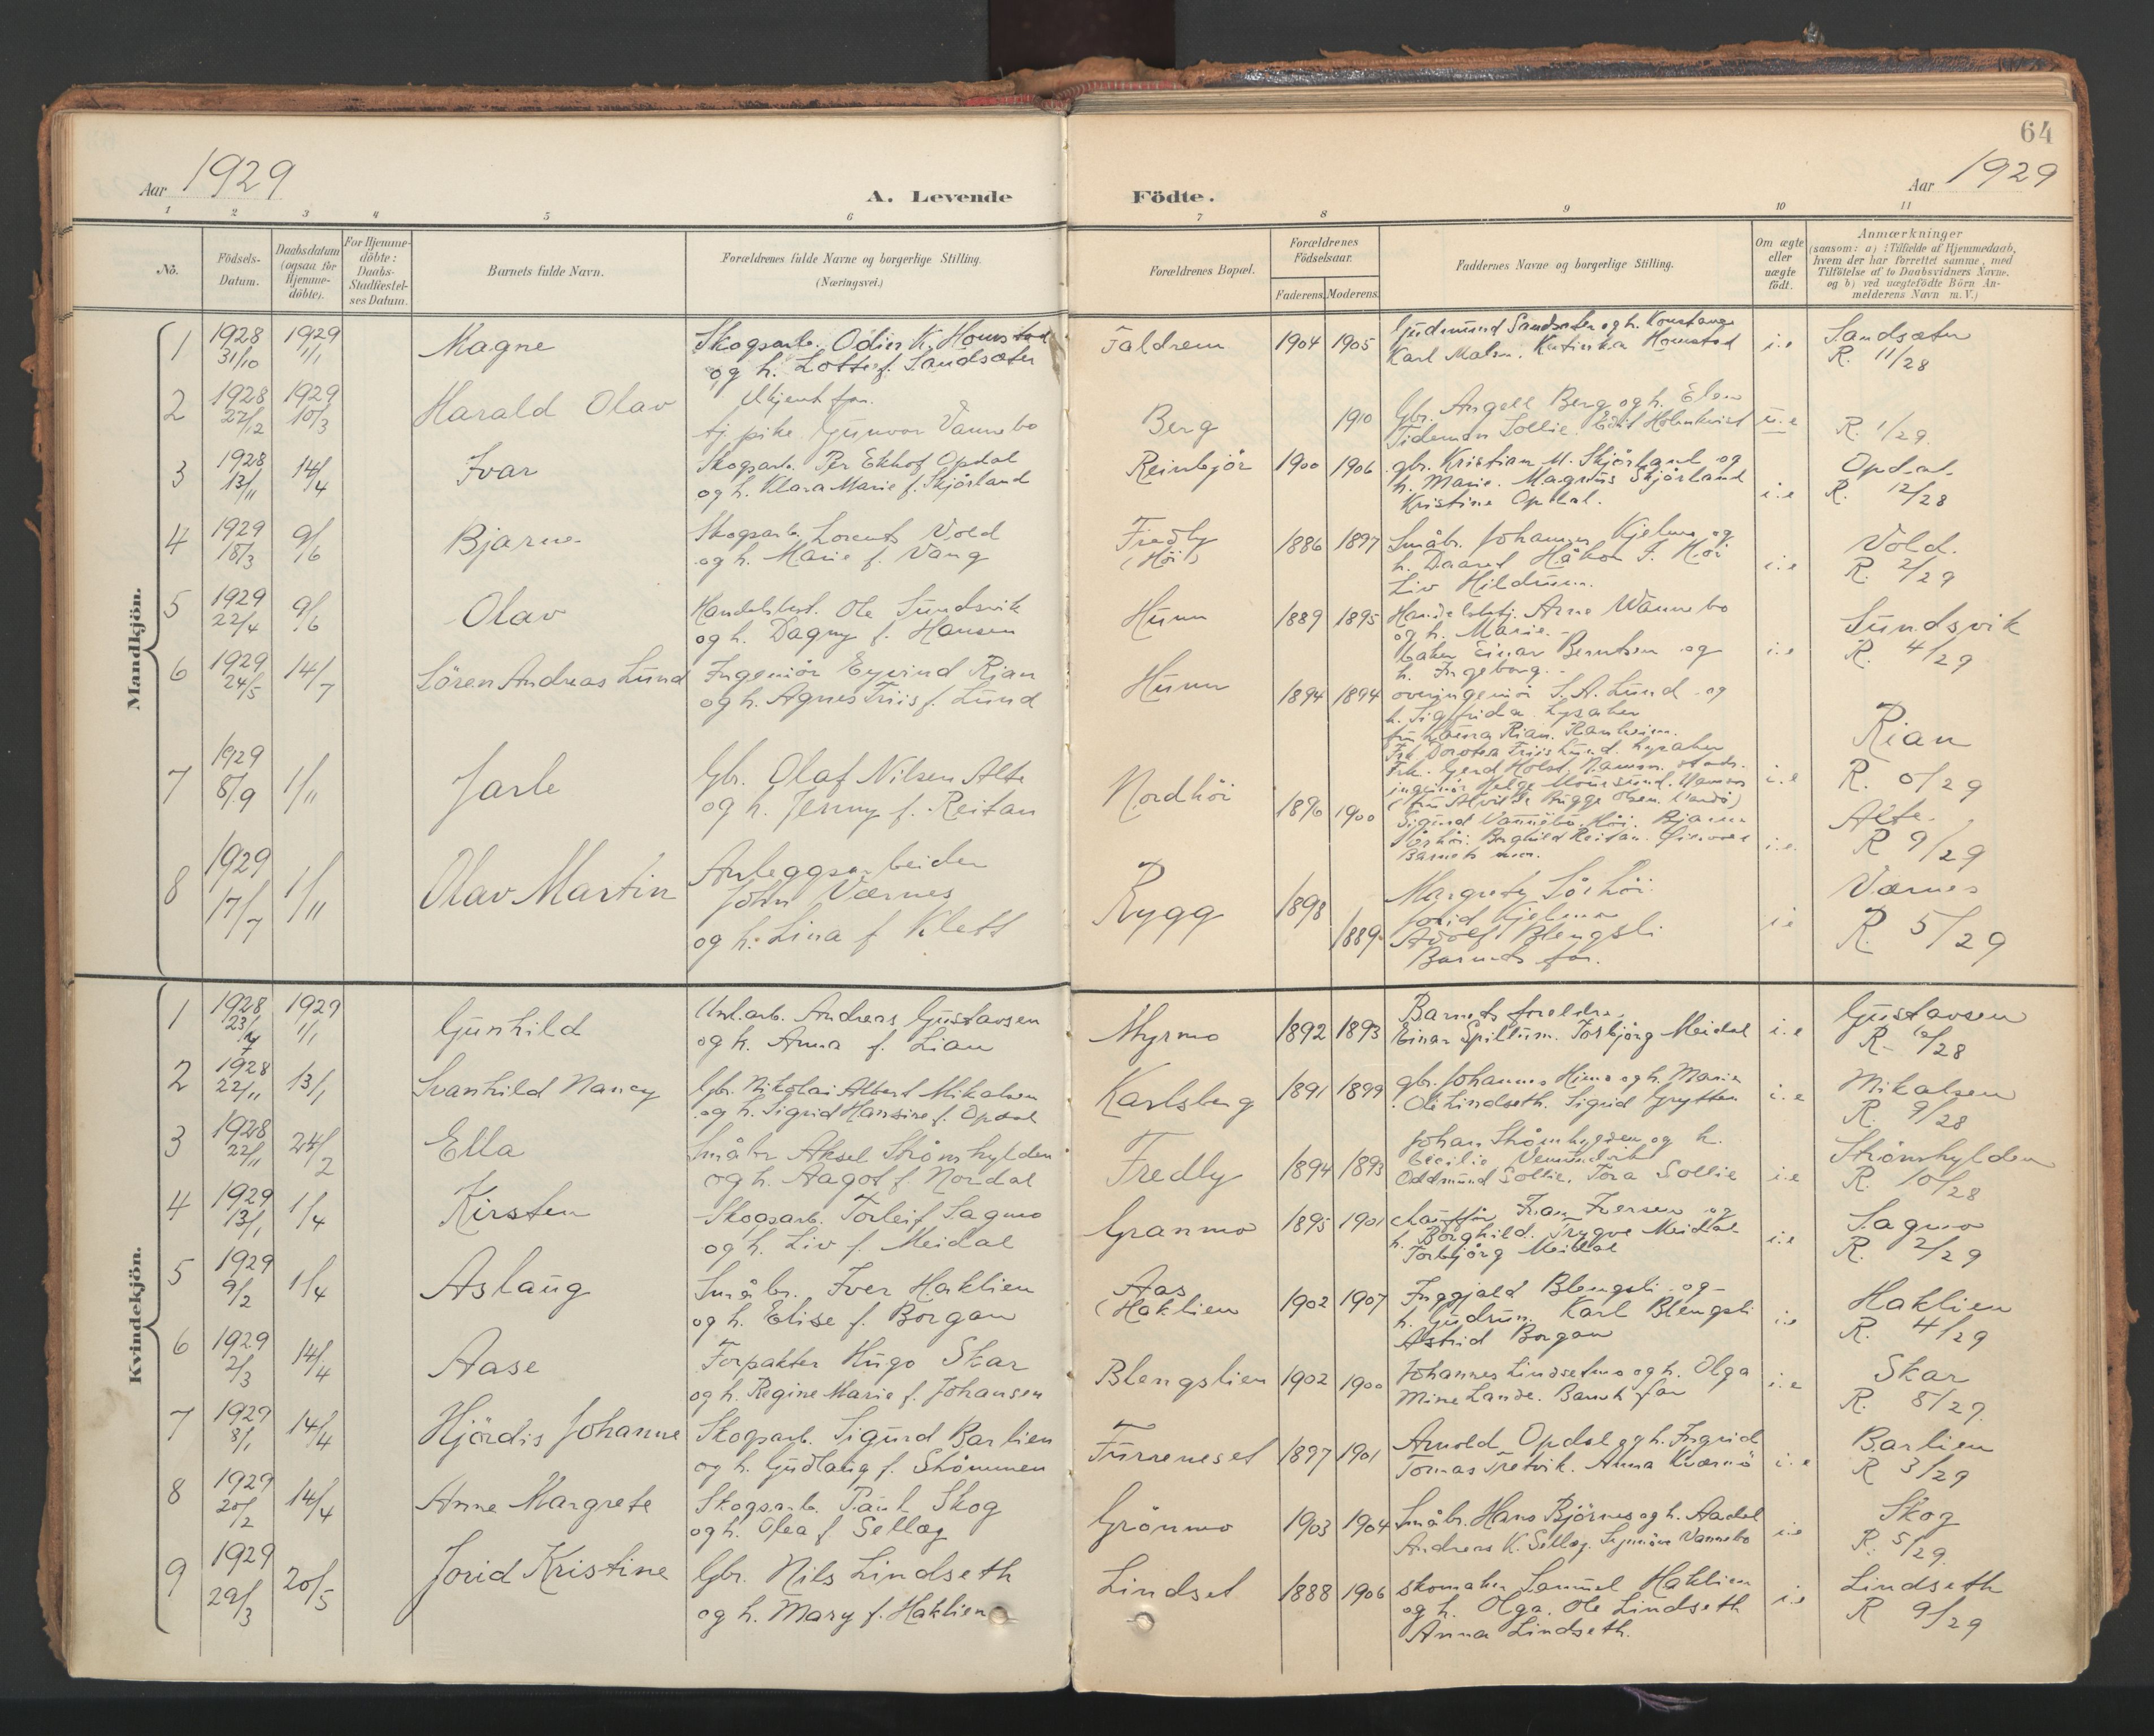 64
Aar 1929
A. Levende Födte.
Aar 1929
1 2 3 4 5 6 7 8 9 10 11
No.
Födsels-
Datum.
Daabsdatum
(ogsaa for
Hjemme-
döbte).
For Hjemme-
döbte:
Daabs-
Stadfæstel-
ses Datum.
Barnets fulde Navn.
Forældrenes fulde Navne og borgerlige Stilling.
(Næringsvei.)
Forældrenes Bopæl.
Forældrenes
Födselsaar.
Faderens. Moderens.
Faddernes Navne og borgerlige Stilling.
Om ægte
eller
uægte
födt.
Anmærkninger
(saasom: a) i Tilfælde af Hjemmedaab,
hvem der har forrettet samme, med
Tilföielse af to Daabsvidners Navne.
og b) ved uægtefödte Börn An-
melderens Navn m. V.)
Mandkjön.
1 1928 31/10 1929 1/1 Magne
Skogsarb. Odin K. Homstad
og h. Lotte f. Sandsæter
Faldrem 1904 1905
Gudmund Sandsæter og h. Konstanse
Karl Malm. Katinka Homstad
i.e
Sandsæter
R. 11/28
2 1928 22/12 1929 10/3 Harald Olav
Ukjent far.
tj. pike Gunvor Vannebo
Berg 1910
Gbr. Angell Berg og h. Elen
Tideman Sollie. Holmkvist
u.e
R. 1/29.
3 1928 13/11 14/4 Ivar
Skogsarb. Per Ekhof Opdal
og h. Klara Marie f. Skjörland
Reinbjör 1900 1906
gbr. Kristian M. Skjörland og
h. Marie. Magnus Skjörland
Kristine Opdal.
i.e
Opdal.
R. 12/28
4 1929 18/3 9/6 Bjarne
Skogsarb. Lorents Vold
og h. Marie f. Vang
Fredly
(Höi)
1886 1897
Småbr. Johannes Kjelmo og
h. Daaret Håkon I. Höi
Liv Hildrum.
i.e
Vold.
R. 2/29
5 1929 22/4 9/6 Olav
Handelsbest. Ole Sundsvik
og h. Dagny f. Hansen
Hunn 1889 1895
Handelsbetj. Arne Wannebo
og h. Marie.
baker Einar Berntsen og
h. Ingeborg.
i.e
Sundsvik
R. 4/29
6 1929 24/5 14/7 Sören Andreas Lund
Ingeniör Eyvind Rian
og h. Agnes Friis f. Lund
Hunn 1894 1894
overingeniör S. A. Lund og
h. Sigfrida. Lysaker
fru Laura Rian. Ranheim.
Frk Dorotea Friis Lund. Lysaker
Frk. Gerd Holst, Namsos. stads-
ingeniör Helge Moursund. Namsos
i.e
Rian
R. 6/29
7 1929 8/9 1/11 Jarle
Gbr. Olaf Nilsen Alte
og h. Jenny f. Reitan
Nordhöi 1896 1900
Sigurd Vannebo. Höi. Bjarne
Sörhöi. Borghild Reitan.
Barnets mor.
i.e.
Alte.
R 9/29
8 1929 17/7 1/11 Olav Martin
Anleggsarbeider
John Værnes
og h. Lina f Klett
Rygg 1898 1889
Margrete Sörhöi
Jorid Kjelmo
Adolf Blengsli
Barnets far.
i.e
Værnes
R. 5/29
Kvindekjön.
1 1928 1929 1/1 Gunhild
Anl.arb. Andreas Gustavsen
og h. Anna f. Lian
Myrmo 1892 1893
Barnets foreldre.
Einar Spillum. Torbjörg Meidal
i.e
Gustavsen
R. 12/28
2 1928 22/11 13/1 Svanhild Nancy
Gbr. Nikolai Albert Mikalsen
og h. Sigrid Hansine f. Opdal
Karlsberg 1891 1899
gbr. Johannes Himo og h. Marie
Ole Lindseth. Sigrid Grytten
i.e
Mikalsen
R. 9/28
3 1928 22/11 24/2 Ella
Småbr Aksel Strömhylden
og h. Aagot f. Nordal
Fredly 1894 1893
Johan Strömhylden og h.
Cecilie Vemundvik
Oddmund Sollie. Tora Sollie
i.e
Strömhylden
R. 10/28
4 1929 13/1 1/4 Kirsten
Skogsarb. Torleif Sagmo
og h. Liv f. Meidal
Granmo 1895 1901
chaufför Iversen og
h. Borghild. Trygve Meidal
Torbjörg Meidal
i.e
Sagmo
R. 2/29
5 1929 9/2 1/4 Aslaug
Småbr. Iver Haklien
og h. Elise f. Borgan
Aas
(Haklien
1902 1907
Inggjald Blengsli og
h. Gudrun. Karl Blengsli
Astrid Borgan
i.e
Haklien
R. 4/29
6 1929 2/3 14/4 Aase
Forpakter Hugo Skar
og h. Regine Marie f. Johansen
Blengslien 1902 1900
Johannes Lindsetmo og h. Olga
Mine Lande. Barnets far
i.e
Skar
R. 8/29.
7 1929 8/1 14/4 Hjördis Johanne
Skogsarb. Sigurd Barlien
og h. Gudlaug f. Strömmen
Furreneset 1897 1901
Arnold Opdal og h. Ingrid
Tomas Tretvik. Anna Kværnö
i.e
Barlien
R 3/29
8 1929 20/2 14/4 Anne Margrete
Skogsarb. Paul Skog
og h. Olea f Sellæg
Grönmo 1903 1904
Småbr. Hans Björnes og h. Aadel
Andreas K. Sellæg. Synnöve Vannebo
i.e
Skog
R. 5/29.
9 1929 29/3 20/5 Jorid Kristine
Gbr. Nils Lindseth
og h. Mary f. Haklien
Lindset 1888 1906
skomaker Samuel Haklien
og h. Olga. Ole Lindseth
Anna Lindseth.
i.e
Lindseth
R 9/29